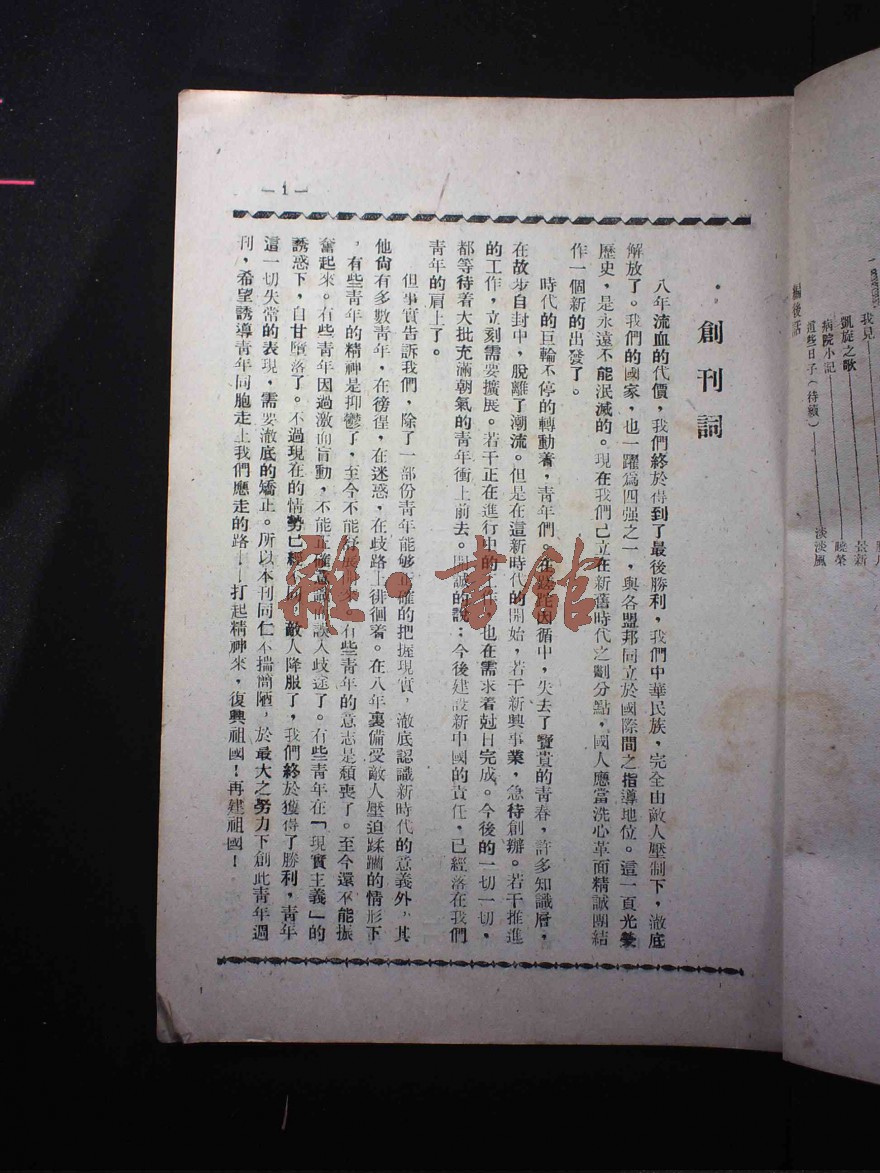 — 1 —
創刊詞
八年流血的代價，我們終於得到了最後勝利，我們中華民族，完全由敵人壓制下，澈底
解放了。我們的國家，也一躍爲四强之一，與各盟邦同立於國際間之指導地位。這一頁光榮
歷史，是永遠不能泯滅的。現在我們已立在新舊時代之劃分點，國人應當洗心革面精誠團結
作一個新的出發了。
時代的巨輪不停的轉動着，青年們，在因循中，失去了寶貴的青春，許多知識層，
在故步自封中，脫離了潮流。但是在這新時代的開始，若干新興事業，急待創辦。若干推進
的工作，立刻需要擴展。若干正在進行中的也在需求着尅日完成。今後的一切一切，
都等待着大批充滿朝氣的青年衝上前去。誠的說：今後建設新中國的責任，已經落在我們
青年的肩上了。
但事實告訴我們，除了一部份青年能够正確的把握現實，澈底認識新時代的意義外，其
他尙有多數青年，在徬徨，在迷惑，在歧路上徘徊着。在八年裏備受敵人壓迫蹂躪的情形下
，有些青年的精神是抑鬱了，至今不能有些青年的意志是頹喪了。至今還不能振
奮起來。有些青年因過激而盲動，不能正確誤入歧途了。有些青年在「現實主義」的
誘惑下，自甘墮落了。不過現在的情勢已經敵人降服了，我們終於獲得了勝利，青年
這一切失常的表現，需要澈底的矯正。所以本刊同仁不揣簡陋，於最大之努力下創此青年週
刊，希望誘導青年同胞走上我們應走的路——打起精神來，復興祖國！再建祖國！
我見
凱旋之歌
病院小記
這些日子（待續）
編後話
景新
曉榮
淡淡風
雜·書館